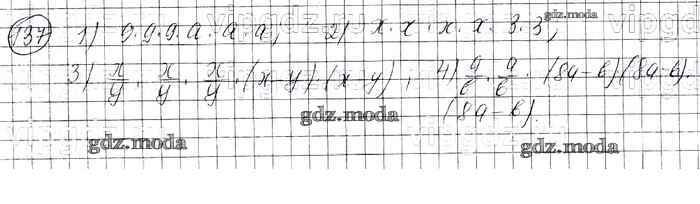 137 1) 9·9·9·a·a·a, 2) x·x·x·x·3·3,
gdz.moda
3) x/y · x/y · x/y · (x-y)·(x-y), 4) a/b · a/b · (8a-b)(8a-b).
(8a-b).
gdz.moda
gdz.moda gdz.moda